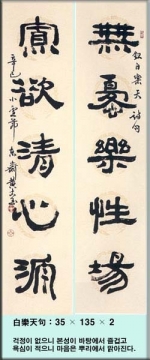 無憂樂性場
白樂天詩句
寡欲淸心源
辛巳 小雪節
白樂天句 : 35 × 135 × 2
걱정이 없으니 본성이 바탕에서 즐겁고
욕심이 적으니 마음은 뿌리에서 맑아진다.